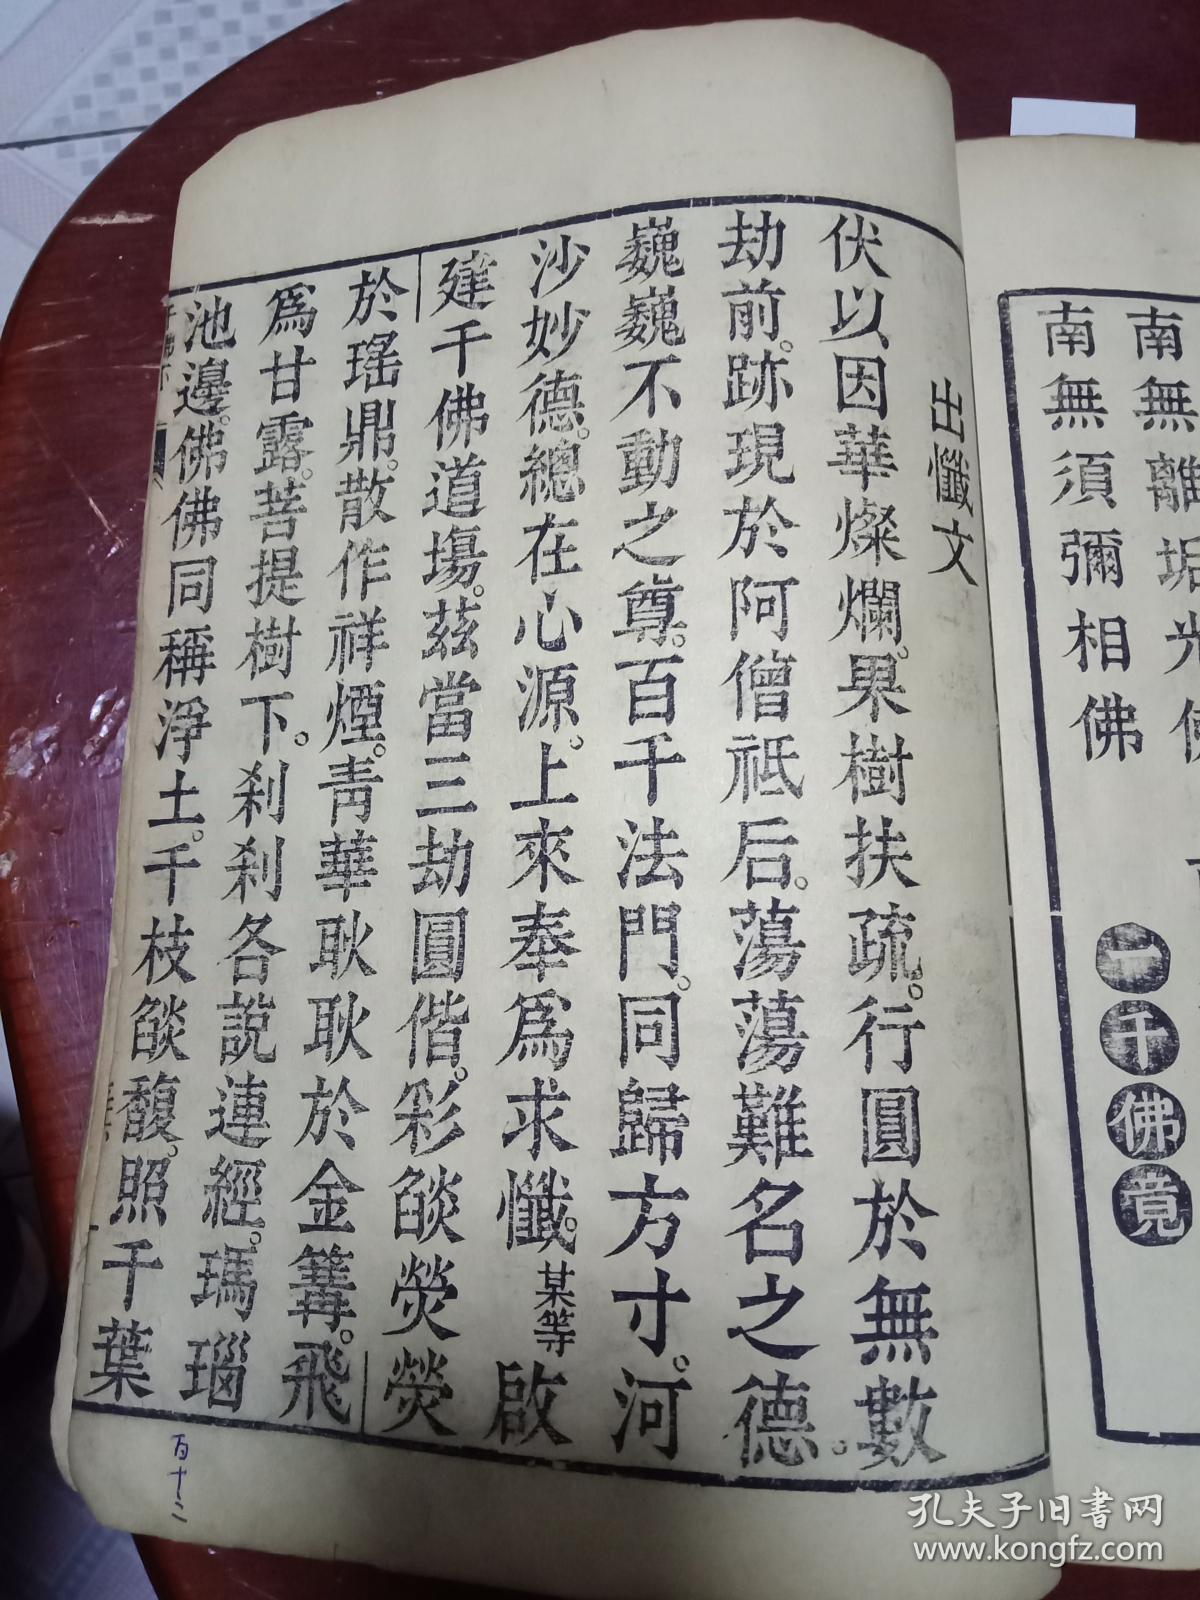 南無離垢光佛
南無須彌相佛
一千佛竟
出懺文
伏以因華燦爛。果樹扶疏。行圓於無數
劫前。跡現於阿僧祇后。蕩蕩難名之德。
巍巍不動之尊。百千法門。同歸方寸。河
沙妙德。總在心源。上來奉爲求懺。某等啟
建千佛道場。茲當三劫圓偕。彩燄熒熒
於瑤鼎。散作祥煙。靑華耿耿於金篝。飛
爲甘露。菩提樹下。刹刹各說連經。瑪瑙
池邊。佛佛同稱淨土。千枝燄馥。照千葉
百十二
孔夫子旧书网
www.kongfz.com